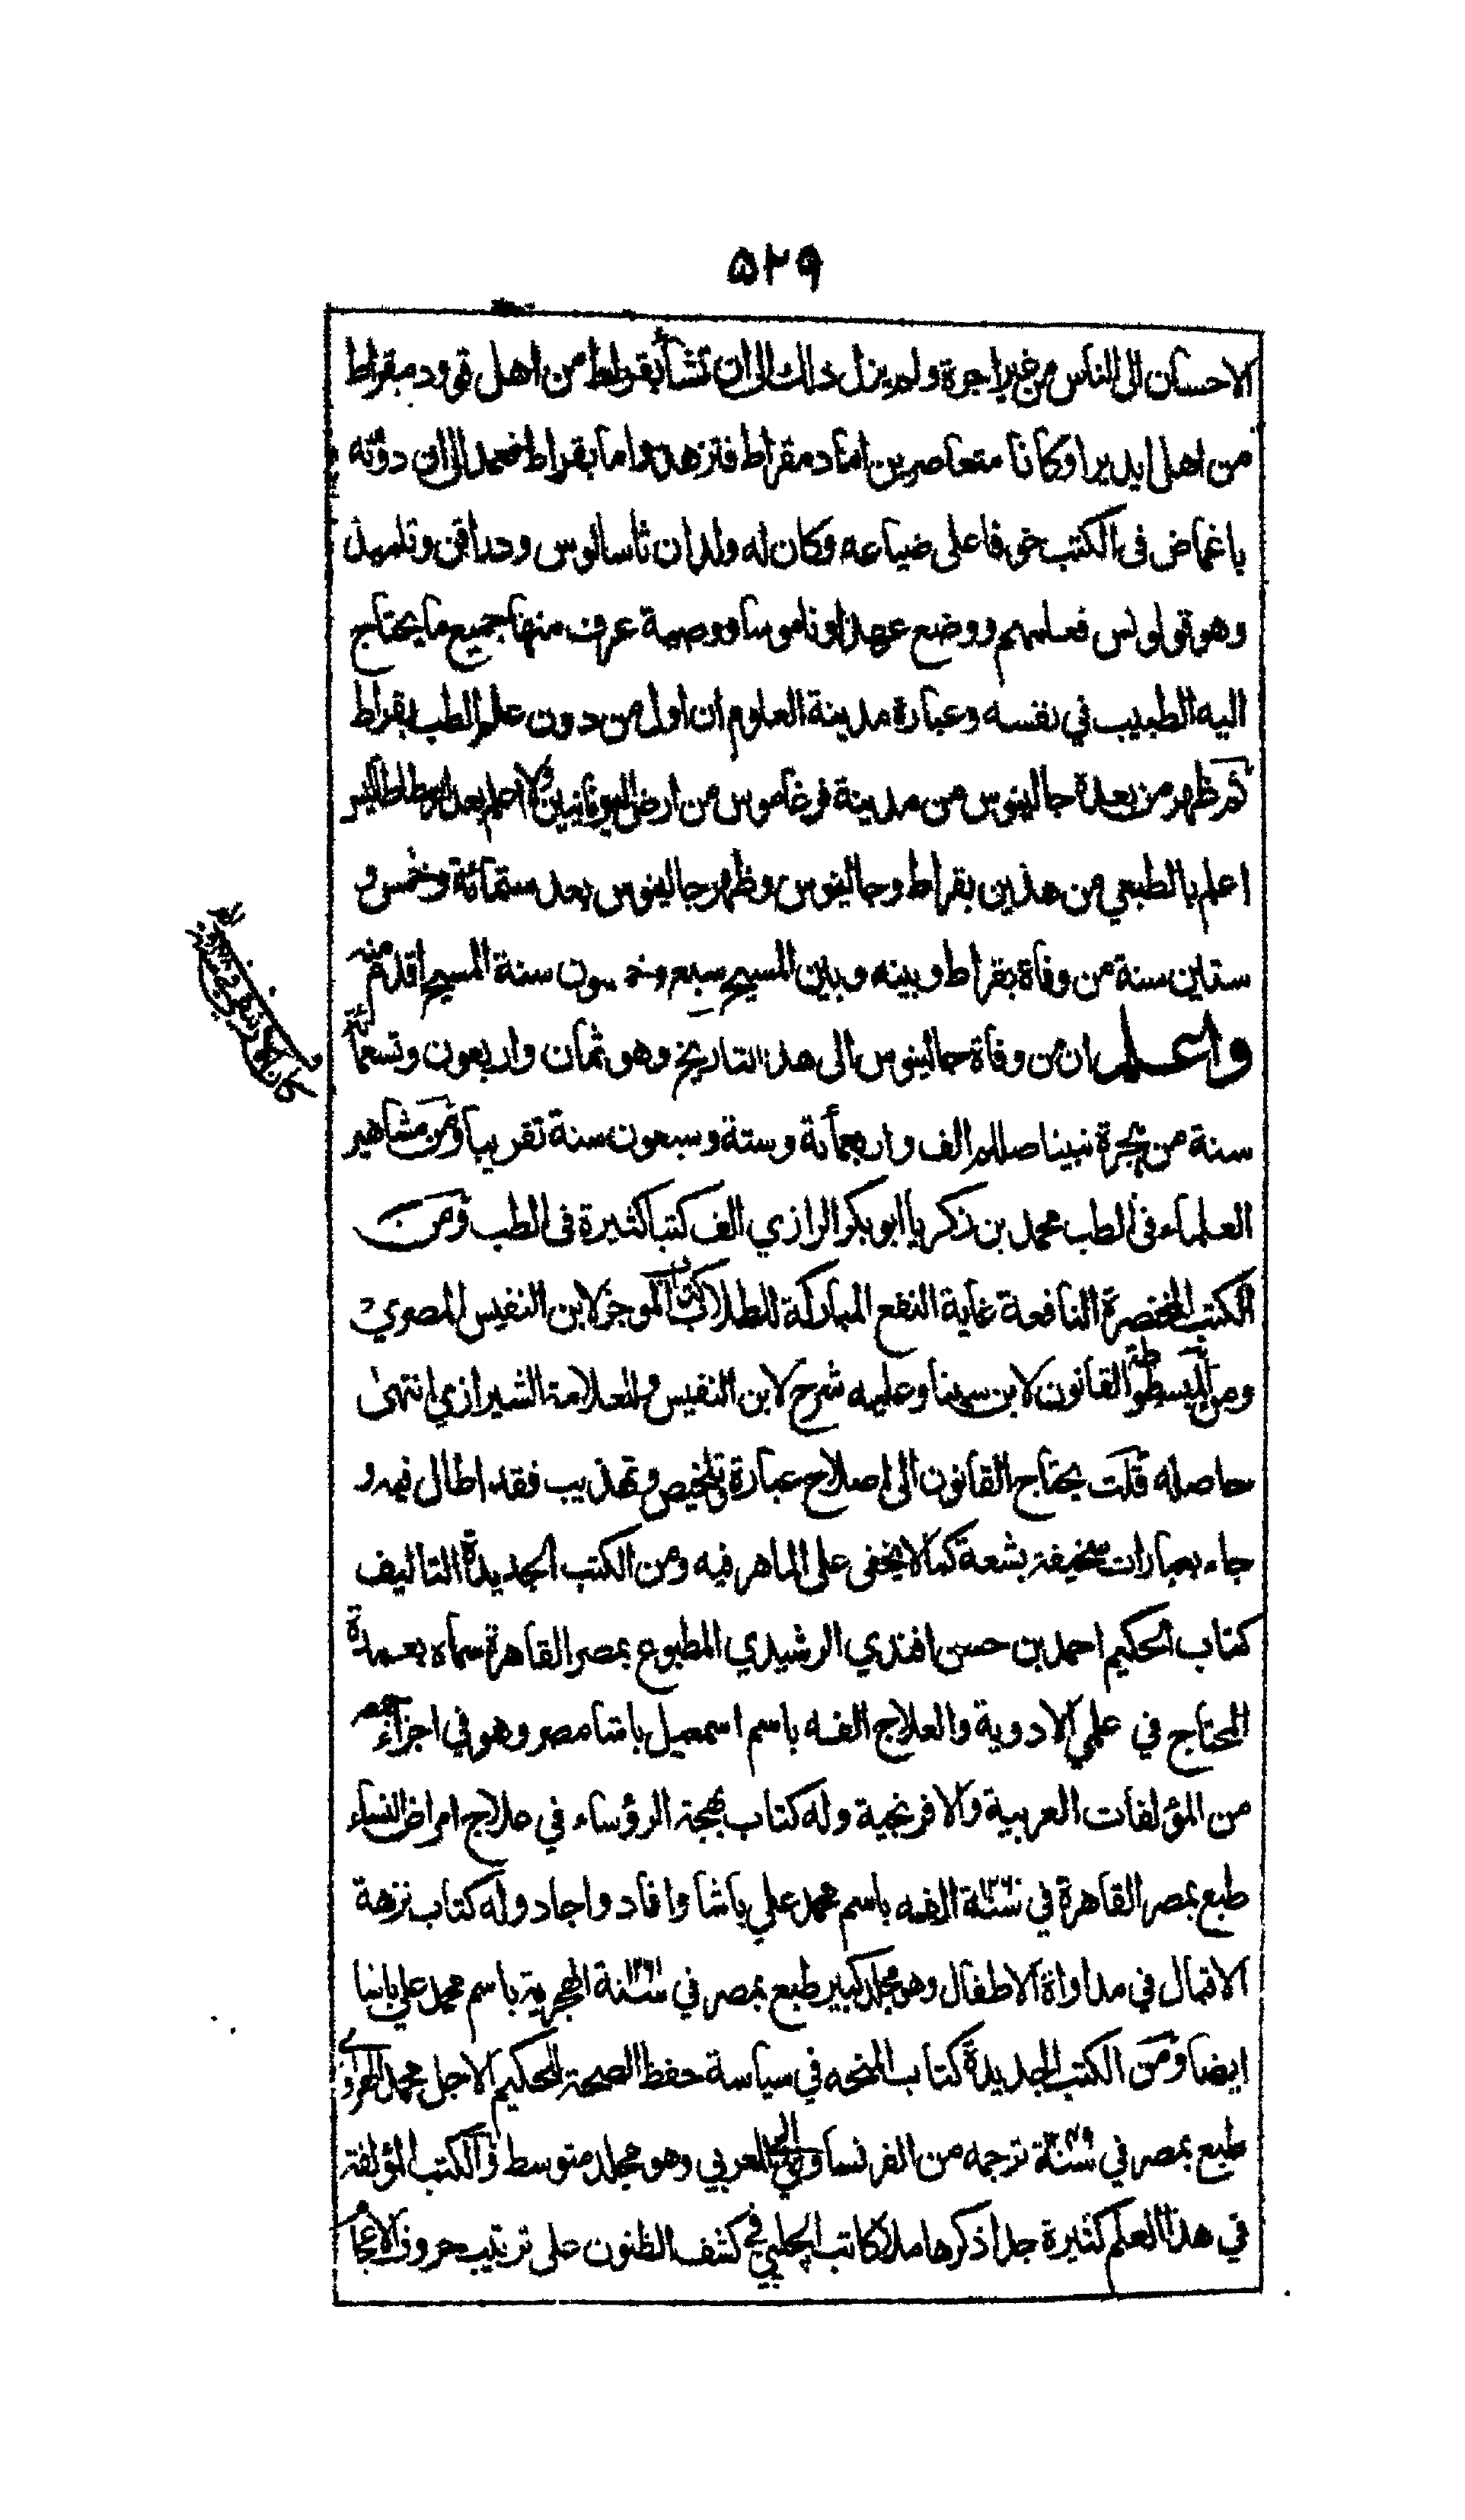 ٥٢٩
الاحسان الى الناس من غير اجرة ولم يزل ذلك الى ان نشأ بقراط من اهل قو ودمقراط
من اهل ابديرا وكانا متعاصرين اما دمقراط فتزهد واما بقراط فعمد الى ان دونه
باغماض فى الكتب خوفا على ضياعه وكان له ولدان ثاسالوس ودراقن وتلميذ
وهو قولوبس فعلمهم ووضع عهدا وناموسا ووصية عرف منها جميع ما يحتاج
اليه الطبيب في نفسه وعبارة مدينة العلوم ان اول من دون علم الطب بقراط
ثم ظهر من بعده جالينوس من مدينة فرغاموس من ارض اليونانيين ولا اعلم بعد ارسطاطاليس
اعلم بالطبعي من هذين بقراط وجالينوس وظهر جالينوس بعد ستمائة وخمس و
ستين سنة من وفاة بقراط وبينه وبين المسيح سبع وخمسون سنة المسيح اقدم منه
واعلم ان من وفاة جالينوس الى هذا التاريخ وهو ثمان واربعون وتسعمائة
سنة من هجرة نبينا صللم الف واربعمأة وستة وسبعون سنة تقريبا ومن مشاهير
العلماء فى الطب محمد بن زكريا ابو بكر الرازي الف كتبا كثيرة فى الطب ومن
الكتب المختصرة النافعة غاية النفع المباركة للطلاب كتاب الموجز لابن النفيس المصري
ومن المبسوطة القانون لابن سينا وعليه شرح لابن النفيس وللعلامة الشيرازي انتهى
حاصله قلت يحتاج القانون الى اصلاح عبارة وتلخيص وتهذيب فقد اطال فيه و
جاء بعبارات سخيفة بشعة كما لا يخفى على الماهر فيه ومن الكتب الجديدة التاليف
كتاب الحكيم احمد بن حسن افندي الرشيدي المطبوع بمصر القاهرة سماه بعمدة
المحتاج في علمي الادوية والعلاج الفه باسم اسمعيل باشا مصر وهو في اجزاء
من المؤلفات العربية والافرنجية وله كتاب بهجة الرؤساء في علاج امراض النساء
طبع بمصر القاهرة في سنة الفه باسم محمد علي باشا وافاد واجاد وله كتاب نزهة
الاقبال في مداواة الاطفال وهو مجلد كبير طبع بمصر في سنة الهجرية باسم محمد علي باشا
ايضا ومن الكتب الجديدة كتاب المنحه في سياسة حفظ الصحة للحكيم الاجل محمد الهراوى
طبع بمصر في سنة ترجمه من الفرنساوي الى العربي وهو مجلد متوسط والكتب المؤلفة
في هذا العلم كثيرة جدا ذكرها ملا كاتب الچلپي في كشف الظنون على ترتيب حروف الاعجام